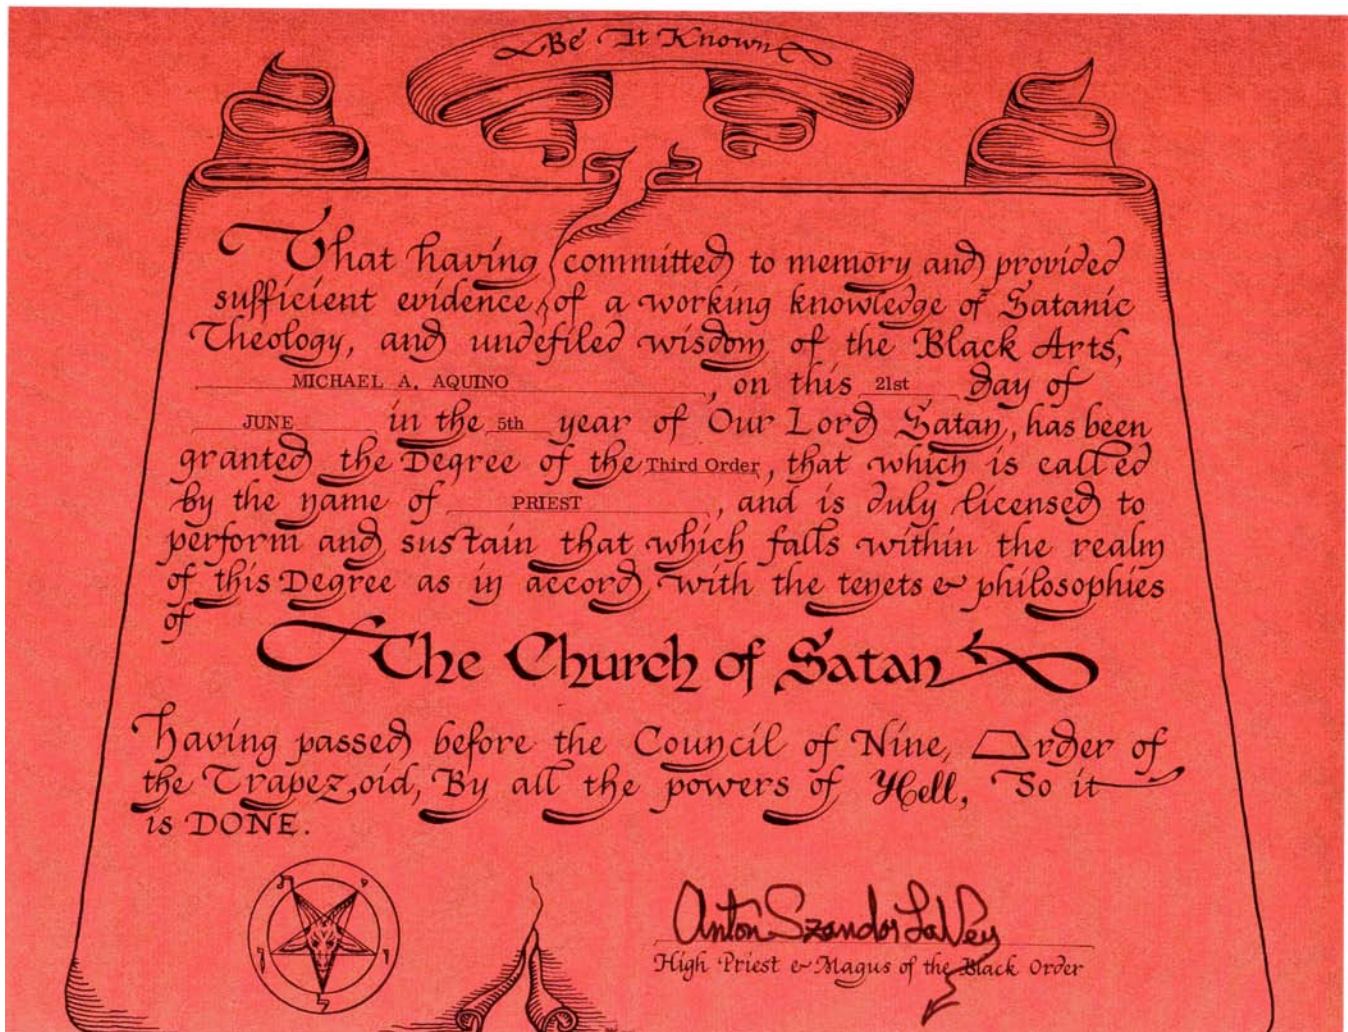 Be It Known
That having committed to memory and provided
sufficient evidence of a working knowledge of Satanic
Theology, and undefiled wisdom of the Black Arts,
MICHAEL A. AQUINO, on this 21st Day of
JUNE in the 5th year of Our Lord Satan, has been
granted the Degree of the Third Order, that which is called
by the name of PRIEST, and is duly licensed to
perform and sustain that which falls within the realm
of this Degree as in accord with the tenets & philosophies
of
The Church of Satan
Having passed before the Council of Nine, Order of
the Trapezoid, By all the powers of Hell, So it
is DONE.
Anton Szandor LaVey
High Priest & Magus of the Black Order